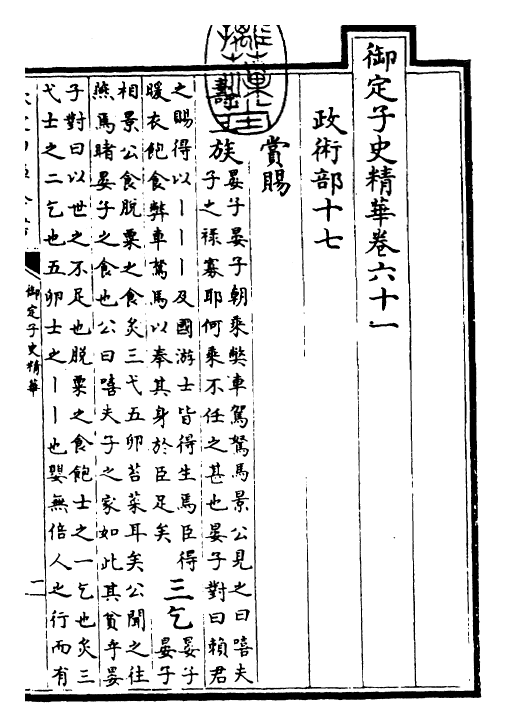 御定子史精華卷六十一
政術部十七
賞賜
壽三族
晏子晏子朝乘弊車駕駑馬景公見之曰嘻夫
子之祿寡耶何乘不任之甚也晏子對曰賴君
之賜得以丨丨丨及國游士皆得生焉臣得
暖衣飽食弊車駑馬以奉其身於臣足矣
三乞
晏子
晏子
相景公食脫粟之食炙三弋五卯苔菜耳矣公聞之往
燕焉睹晏子之食也公曰嘻夫子之家如此其貧乎晏
子對曰以世之不足也脫粟之食飽士之一乞也炙三
弋士之二乞也五卯士之丨丨也嬰無倍人之行而有
御定子史精華